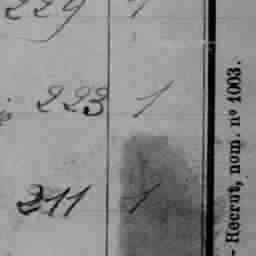 229 1
223 1
211 1
- Recrut, nom. nº 1003.